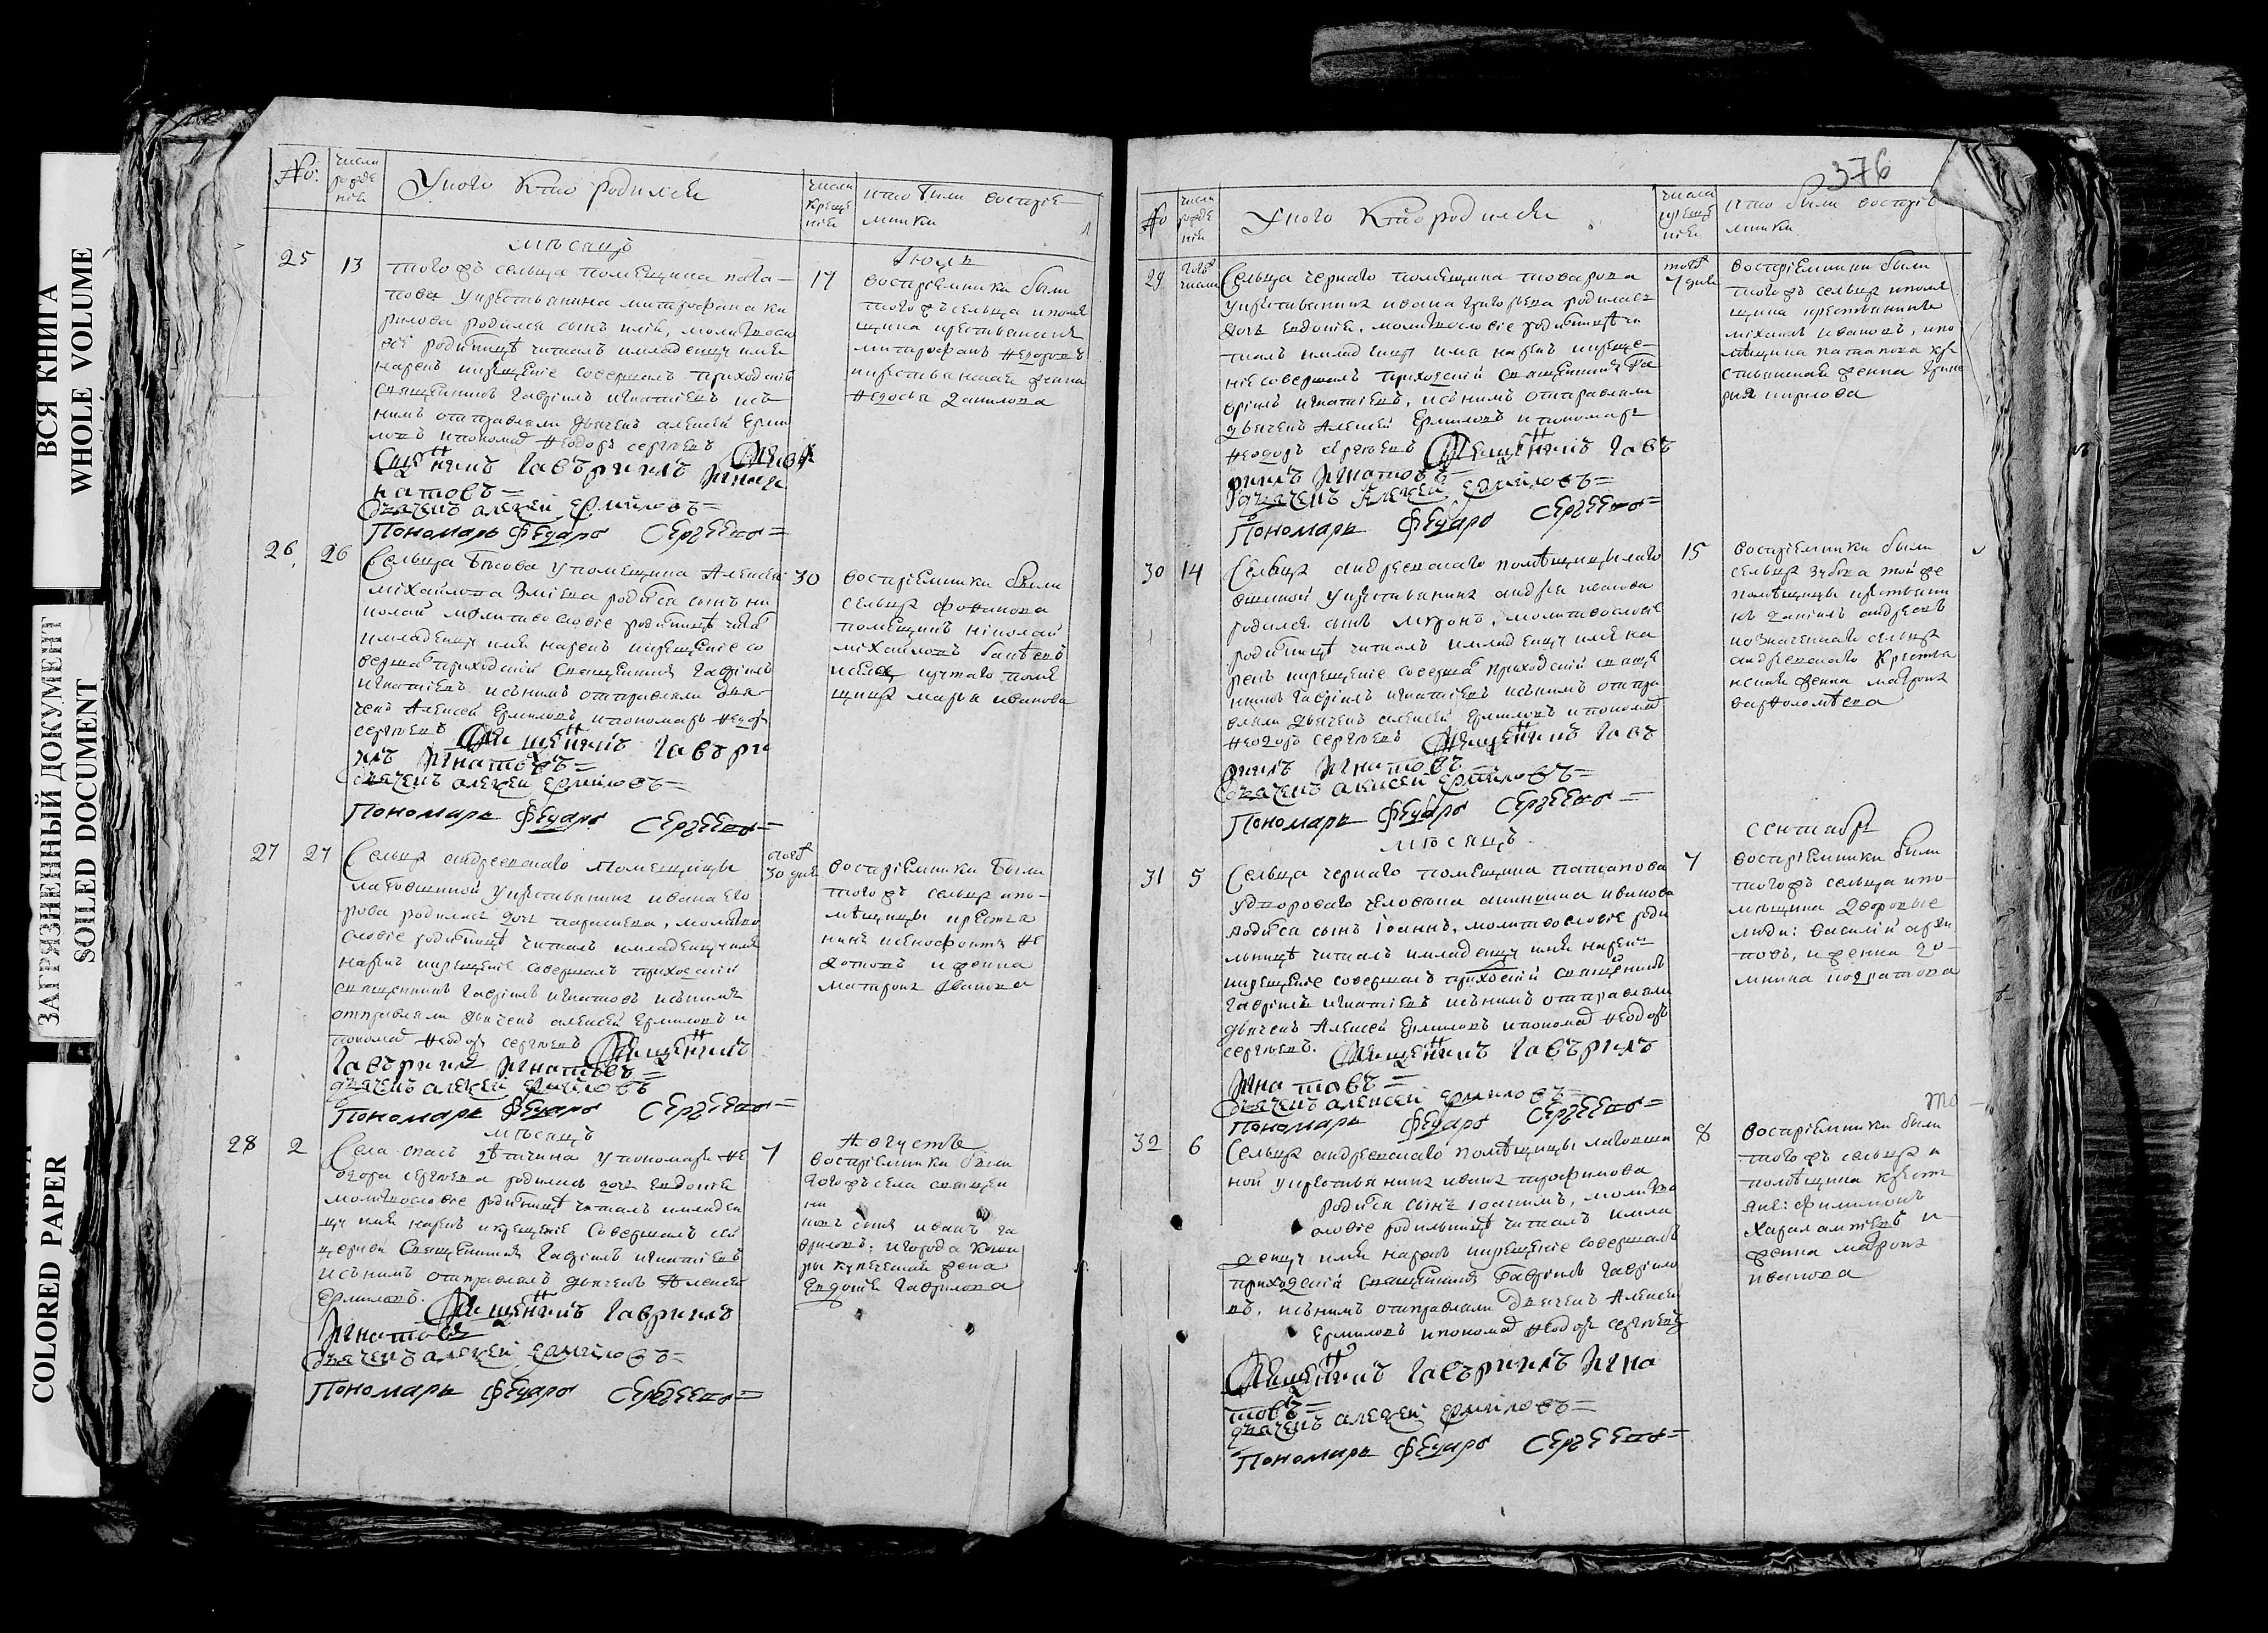 ВСЯ КНИГА
WHOLE VOLUME
ЗАГРЯЗНЕННЫЙ ДОКУМЕНТ
SOILED DOCUMENT
COLORED PAPER
No:
числа рожде нія
У кого кто родился
числа креще нія
кто были воспріе
мники
мѣсяцъ
Іюль
25
13
тогожъ сельца помещика пота
пова у крестьянина митрофана ки
рилова родился сынъ илія, молитвосло
віе родильницѣ читалъ и младенцу имя
нареклъ и крещеніе совершалъ приходскій
священникъ Гавріилъ игнатіевъ и съ
нимъ отправляли дьячекъ алексей Ерми
ловъ и пономар Ѳеодоръ сергѣевъ
Гавъриилъ
натовъ=
дьячекъ алеѯей ермиловъ=
Пономарь Федаръ Сергеевъ=
17
воспріемники были
тогожъ сельца и поме
щика крестьянинъ
митрофанъ Ѳедоровъ
и крестьянская женка
Ѳедосья данилова
26
26
Сельца Бѣсова у помещика Алексея
міхайлова Змѣева родился сынъ ни
колай молитвословіе родильницѣ читал
и младенцу имя нареклъ и крещеніе со
вершал приходскій священникъ Гавріилъ
игнатіевъ и съ нимъ отправляли дья
чекъ Алексей Ермиловъ и пономарь Ѳедор
сергѣевъ Священникъ Гавъри
илъ Игнатовъ=
дьячекъ алеѯей ермиловъ=
Пономарь Федаръ Сергеевъ=
30
воспріемники были
сельца
помещикъ ніколай
міхайловъ
поме
щица марья иванова
27
27
Сельца андреевскаго помещицы
лаговщиной у крестьянина ивана его
рова родилась дочь парасвева, молитво
словіе родильницѣ читалъ и младенцу имя
нареклъ и крещеніе совершалъ приходскій
священникъ Гавріилъ игнатовъ и съ нимъ
отправляли дьячекъ алексей Ермиловъ и
пономар Ѳеодор сергѣевъ Священникъ
Гавъриилъ Игнатовъ=
дьячекъ алеѯей ермиловъ
Пономарь Федаръ Сергеевъ=
тогож
30 дня
воспріемники были
тогожъ сельца и по
мѣщицы крестья
нинъ ксенофонтъ Ѳе
дотовъ и женка
матрона Иванова
мѣсяцъ
Августъ
28
2
Села спасъ дѣтчина у пономаря Ѳе
одора сергѣева родилась дочь Евдокія
молитвословіе родильницѣ читалъ и младен
цу имя нареклъ и крещеніе совершалъ
священникъ Гавріилъ игнатіевъ
и съ нимъ отправлялъ дьячекъ Алексей
Ермиловъ. Священникъ Гавриилъ
Игнатовъ
дьячекъ алеѯей ермиловъ=
Пономарь Федаръ Сергеевъ=
7
воспріемники были
тогожъ села священ
ни
ковъ сынъ иванъ га
вриловъ, и города каши
ры купеческая жена
Евдокія Гаврилова
376
No
числа рожде нія
У кого кто родился
числа креще нія
кто были воспріе
мники
29
тогож числа
Сельца чернаго помещика товарова
у крестьянина ивана григорьева родилась
дочь Евдокія, молитвословіе родильницѣ чи
талъ и младенцу имя нареклъ и креще
ніе совершалъ приходскій священникъ Га
вріилъ игнатіевъ, и съ нимъ отправляли
дьячекъ Алексей Ермиловъ и пономарь
Ѳеодоръ сергѣевъ Священникъ Гавъ
риилъ Игнатовъ=
дьячекъ Алеѯей ермиловъ=
Пономарь Федаръ Сергеевъ=
тогож
7 дня
воспріемники были
тогожъ сельца и поме
щика крестьянинъ
міхаилъ ивановъ, и по
мѣщика патапова кре
стьянская женка
кирилова
30
14
Сельца андреевскаго помѣщицы лаго
вщиной у крестьянина андрея иванова
родился сынъ миронъ, молитвословіе
родильницѣ читалъ и младенцу имя на
реклъ и крещеніе совершал приходскій свяще
нникъ Гавріилъ игнатіевъ и съ нимъ отпра
вляли дьячекъ алексей Ермиловъ и пономар
Ѳеодоръ сергѣевъ Священникъ Гавъ
риилъ Игнатовъ
дьячекъ алексей ермиловъ=
Пономарь Федаръ Сергеевъ=
15
воспріемники были
сельца зубова той же
помѣщицы крестьяни
нъ даніилъ андреевъ
и означеннаго сельца
андреевскаго крестья
нская женка матрона
варѳоломѣева
мѣсяцъ
сентябрь
31
5
Сельца чернаго помещика патапова
у двороваго человека акинѳина иванова
родился сынъ Іоаннъ, молитвословіе роди
льницѣ читалъ и младенцу имя нареклъ
и крещеніе совершалъ приходскій священникъ
Гавріилъ игнатіевъ и съ нимъ отправляли
дьячекъ Алексей Ермиловъ и пономар Ѳеодоръ
сергѣевъ. Священникъ Гавъриилъ
Игнатовъ=
дьячекъ алексей ермиловъ=
Пономарь Федаръ Сергеевъ=
7
воспріемники были
тогожъ сельца и по
мѣщика дворовые
люди: василій архи
повъ, и женка до
мника кодратова
то
32
6
Сельца андреевскаго помѣщицы лаговщи
ной у крестьянина ивана трофимова
родился сынъ іоакимъ, молитво
словіе родильницѣ читалъ и мла
денцу имя нареклъ и крещеніе совершалъ
приходскій священникъ Гавріилъ Гаврило
въ, и съ нимъ отправляли дьячекъ Алексей
Ермиловъ и пономар Ѳеодор сергѣевъ
Священникъ Гавъриилъ Игна
товъ=
дьячекъ алеѯей ермиловъ=
Пономарь Федаръ Сергеевъ=
8
воспріемники были
тогожъ сельца и
помѣщика крест
яне: филимонъ
харалампіевъ и
женка матрона
иванова